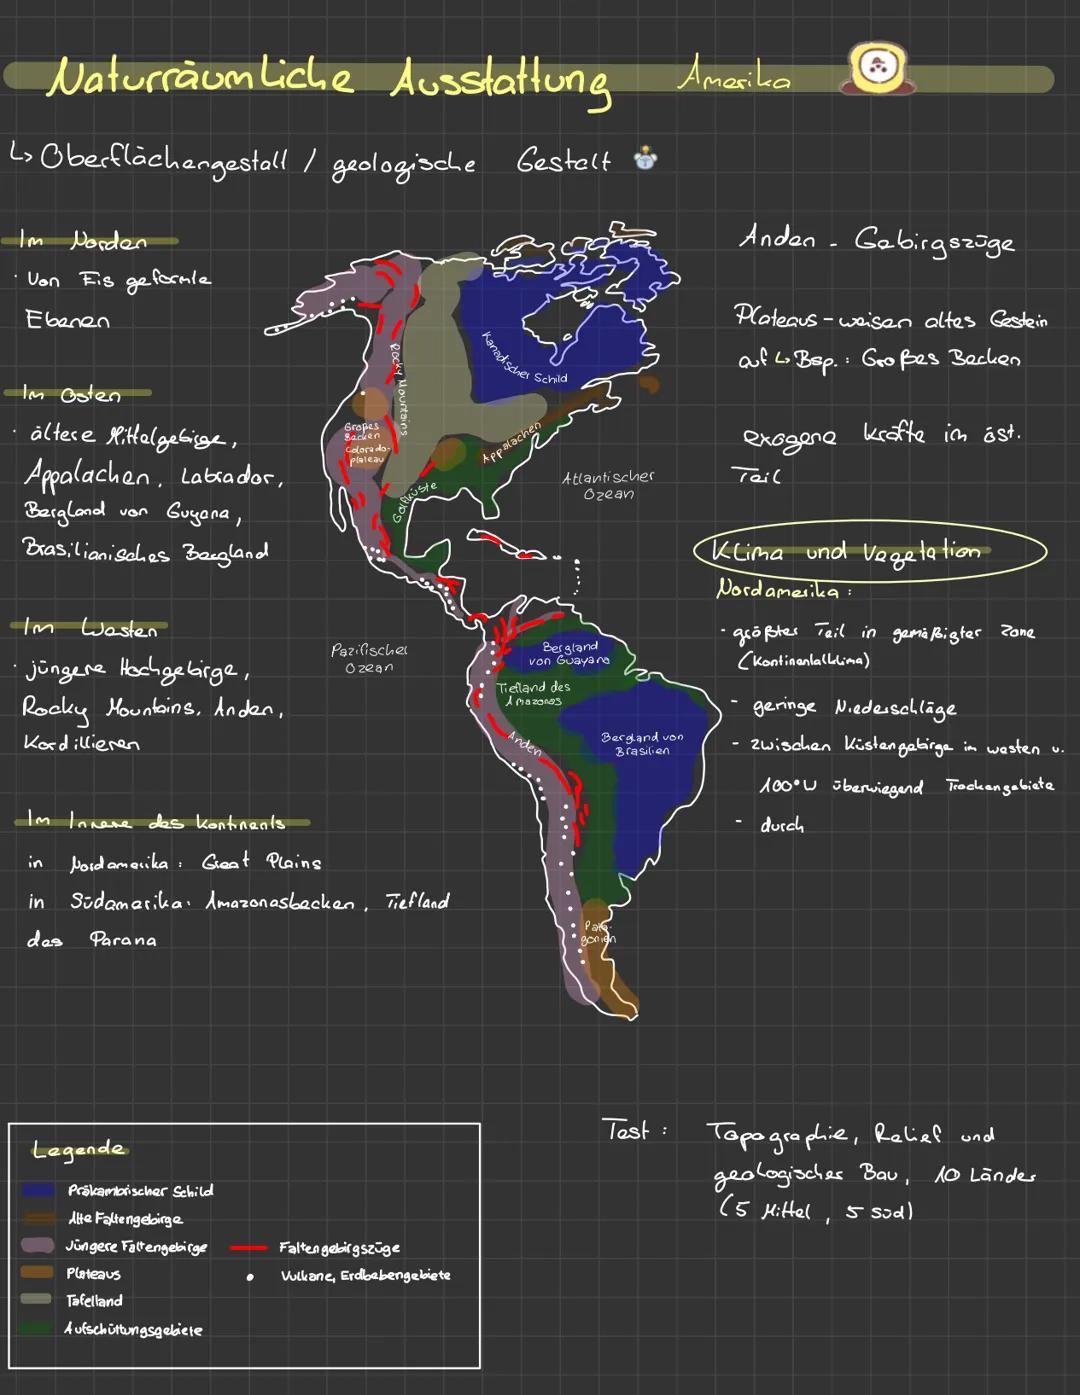 Naturräumliche Ausstattung Amerika
↳ Oberflächengestalt / geologische Gestalt
Im Norden
· Von Eis geformte
Ebenen
Im Osten
· ältere Mittelgebirge,
Appalachen, Labrador,
Bergland von Guyana,
Brasilianisches Bergland
Im Westen
· jüngere Hochgebirge,
Rocky Mountains, Anden,
Kordillieren
Im Innere des Kontinents
in Nordamerika: Great Plains
in Südamerika: Amazonasbecken, Tiefland
des Parana
Kanadischer Schild
Rocky Mountains
Großes
Becken
Colorado-
plateau
Appalachen
Golfküste
Atlantischer
Ozean
Pazifischer
Ozean
Bergland
von Guayana
Tiefland des
Amazonas
Anden
Bergland von
Brasilien
Pata-
gonien
Anden - Gebirgszüge
Plateaus - weisen altes Gestein
auf ↳ Bsp.: Großes Becken
exogene kräfte im öst.
Teil
Klima und Vegetation
Nordamerika:
- größter Teil in gemäßigter Zone
(Kontinentalklima)
- geringe Niederschläge
- zwischen Küstengebirge im westen u.
100°W überwiegend Trockengebiete
- durch
Legende
Präkambrischer Schild
Alte Faltengebirge
Jüngere Faltengebirge
Plateaus
Tafelland
Aufschüttungsgebiete
Faltengebirgszüge
Vulkane, Erdbebengebiete
Test: Topographie, Relief und
geologischer Bau, 10 Länder
(5 Mittel, 5 Süd)